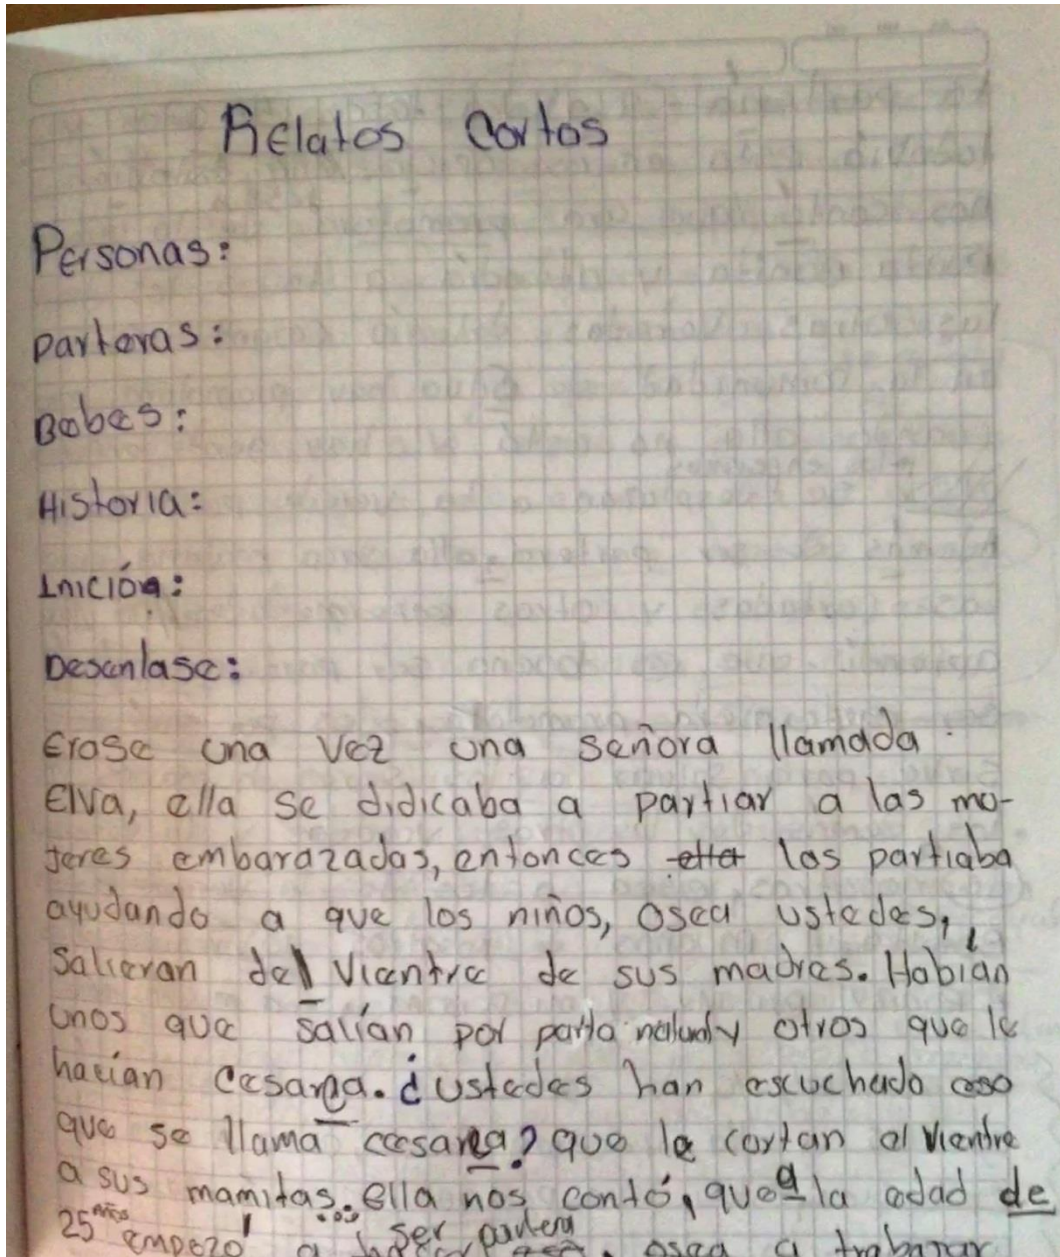 Relatos Cortos
Personas:
parteras:
Bebes:
Historia:
Inición:
Desenlase:
Erase una vez una señora llamada
Elva, ella se didicaba a partiar a las mo-
jeres embarazadas, entonces ella las partiaba
ayudando a que los niños, osea ustedes,
salieran del vientre de sus madres. Habían
unos que salían por parto natural y otros que le
hacían cesarea. ¿ustedes han escuchado eso
que se llama cesarea? que le cortan el vientre
a sus mamitas... ella nos contó, que a la edad de
25 años empezó a ser partera, osea a trabajar